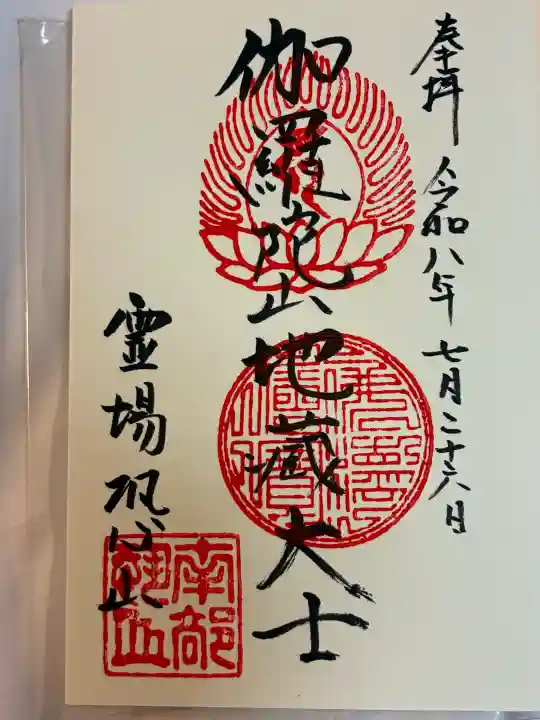 奉拝 令和八年 七月二十六日
伽羅陀山地蔵大士
霊場恐山
南部